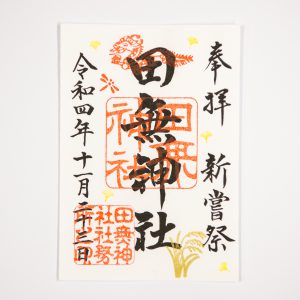 奉拝 新嘗祭
田無神社
令和四年十一月二十三日
田無神社
田無神社社務所之印